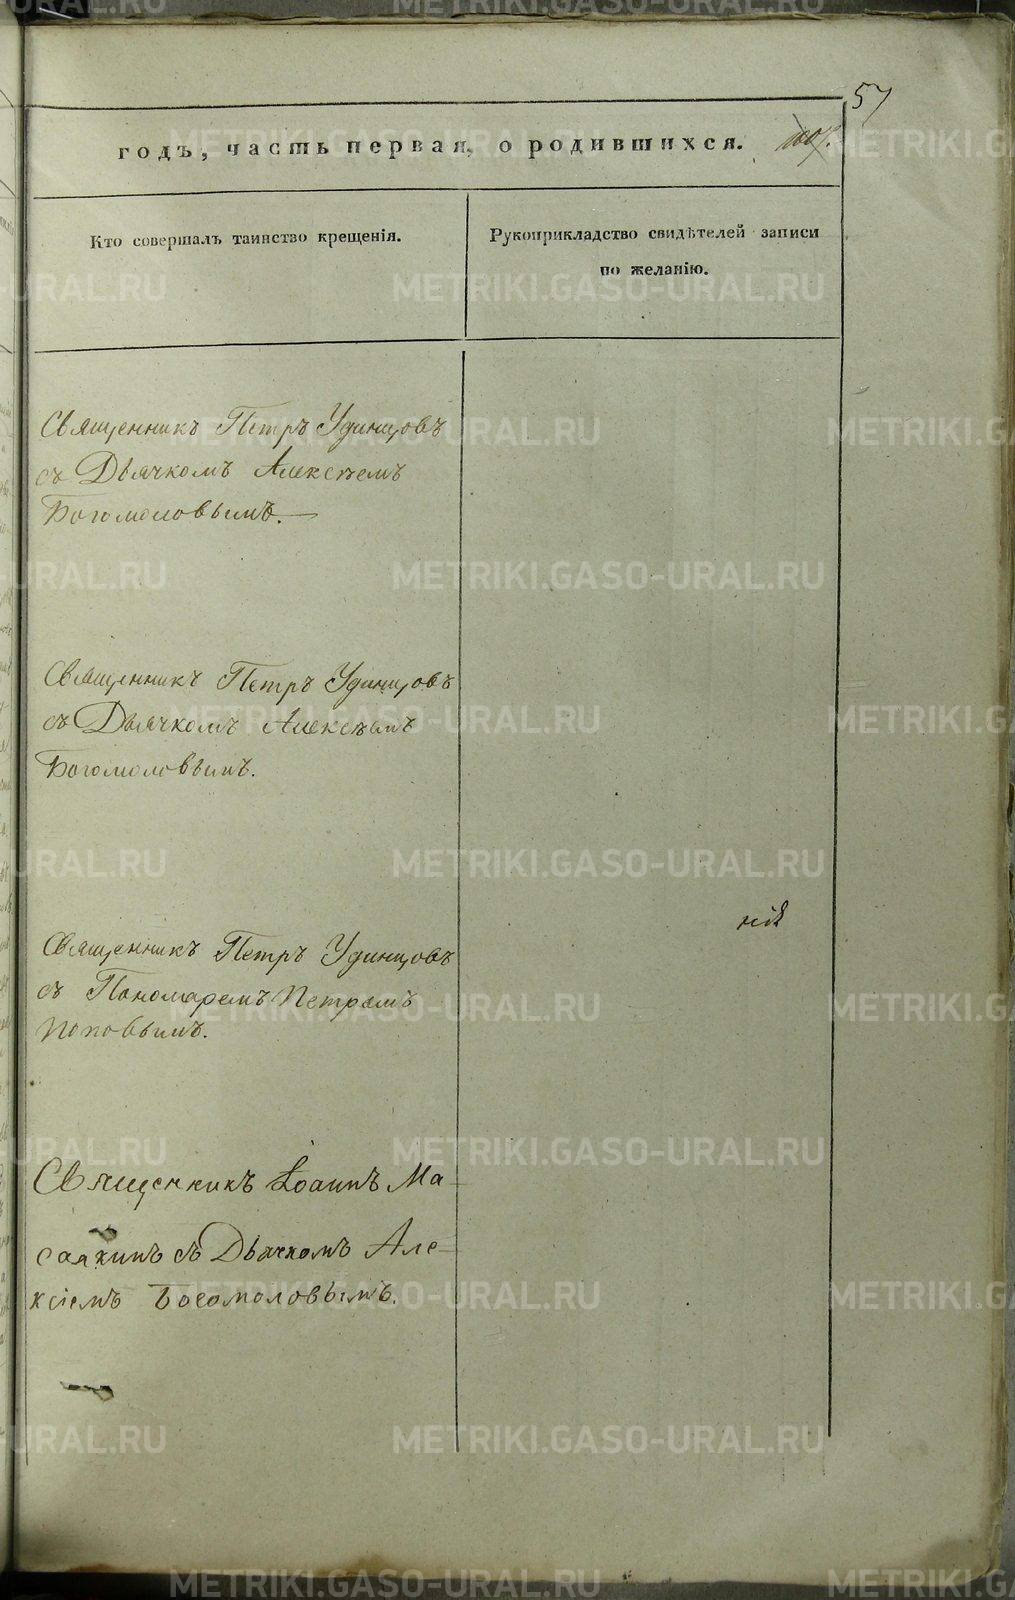 57
годъ, часть первая, о родившихся.
Кто совершалъ таинство крещенія.
Рукоприкладство свидѣтелей записи
по желанію.
Священникъ Петръ Удинцовъ
съ Дьячкомъ Алексѣемъ
Богомоловымъ.
Священникъ Петръ Удинцовъ
съ Дьячкомъ Алексѣемъ
Богомоловымъ.
Священникъ Петръ Удинцовъ
съ Пономаремъ Петромъ
Поповымъ.
Священникъ Іоаннъ Ма-
съ Дьячкомъ Але-
ксіемъ Богомоловымъ.
METRIKI.GASO-URAL.RU